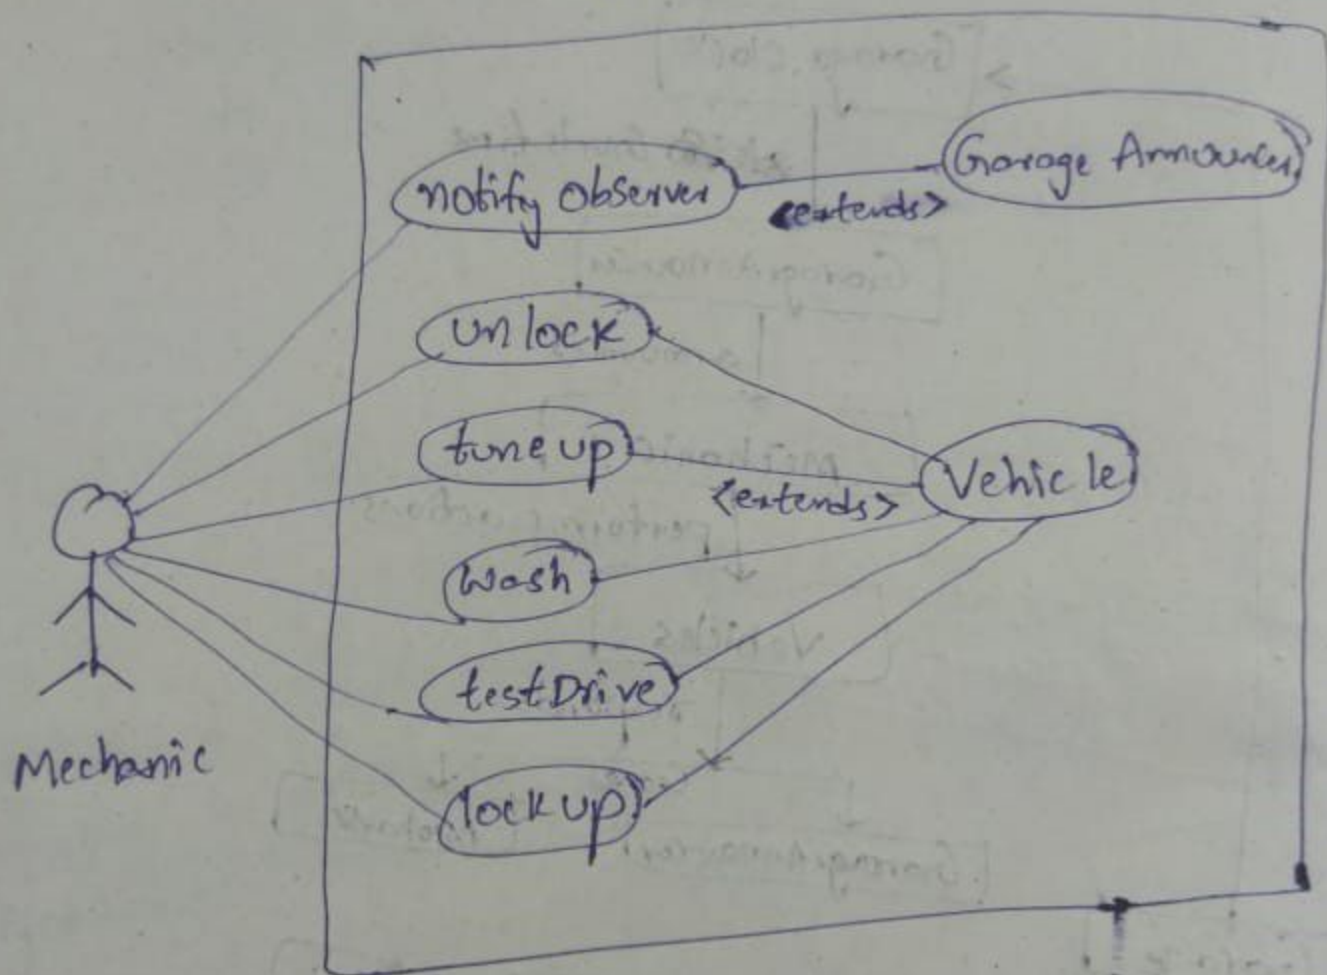 notify observer
<extends>
Garage Announcer
unlock
tune up
<extends>
Vehicle
wash
testDrive
lockup
Mechanic